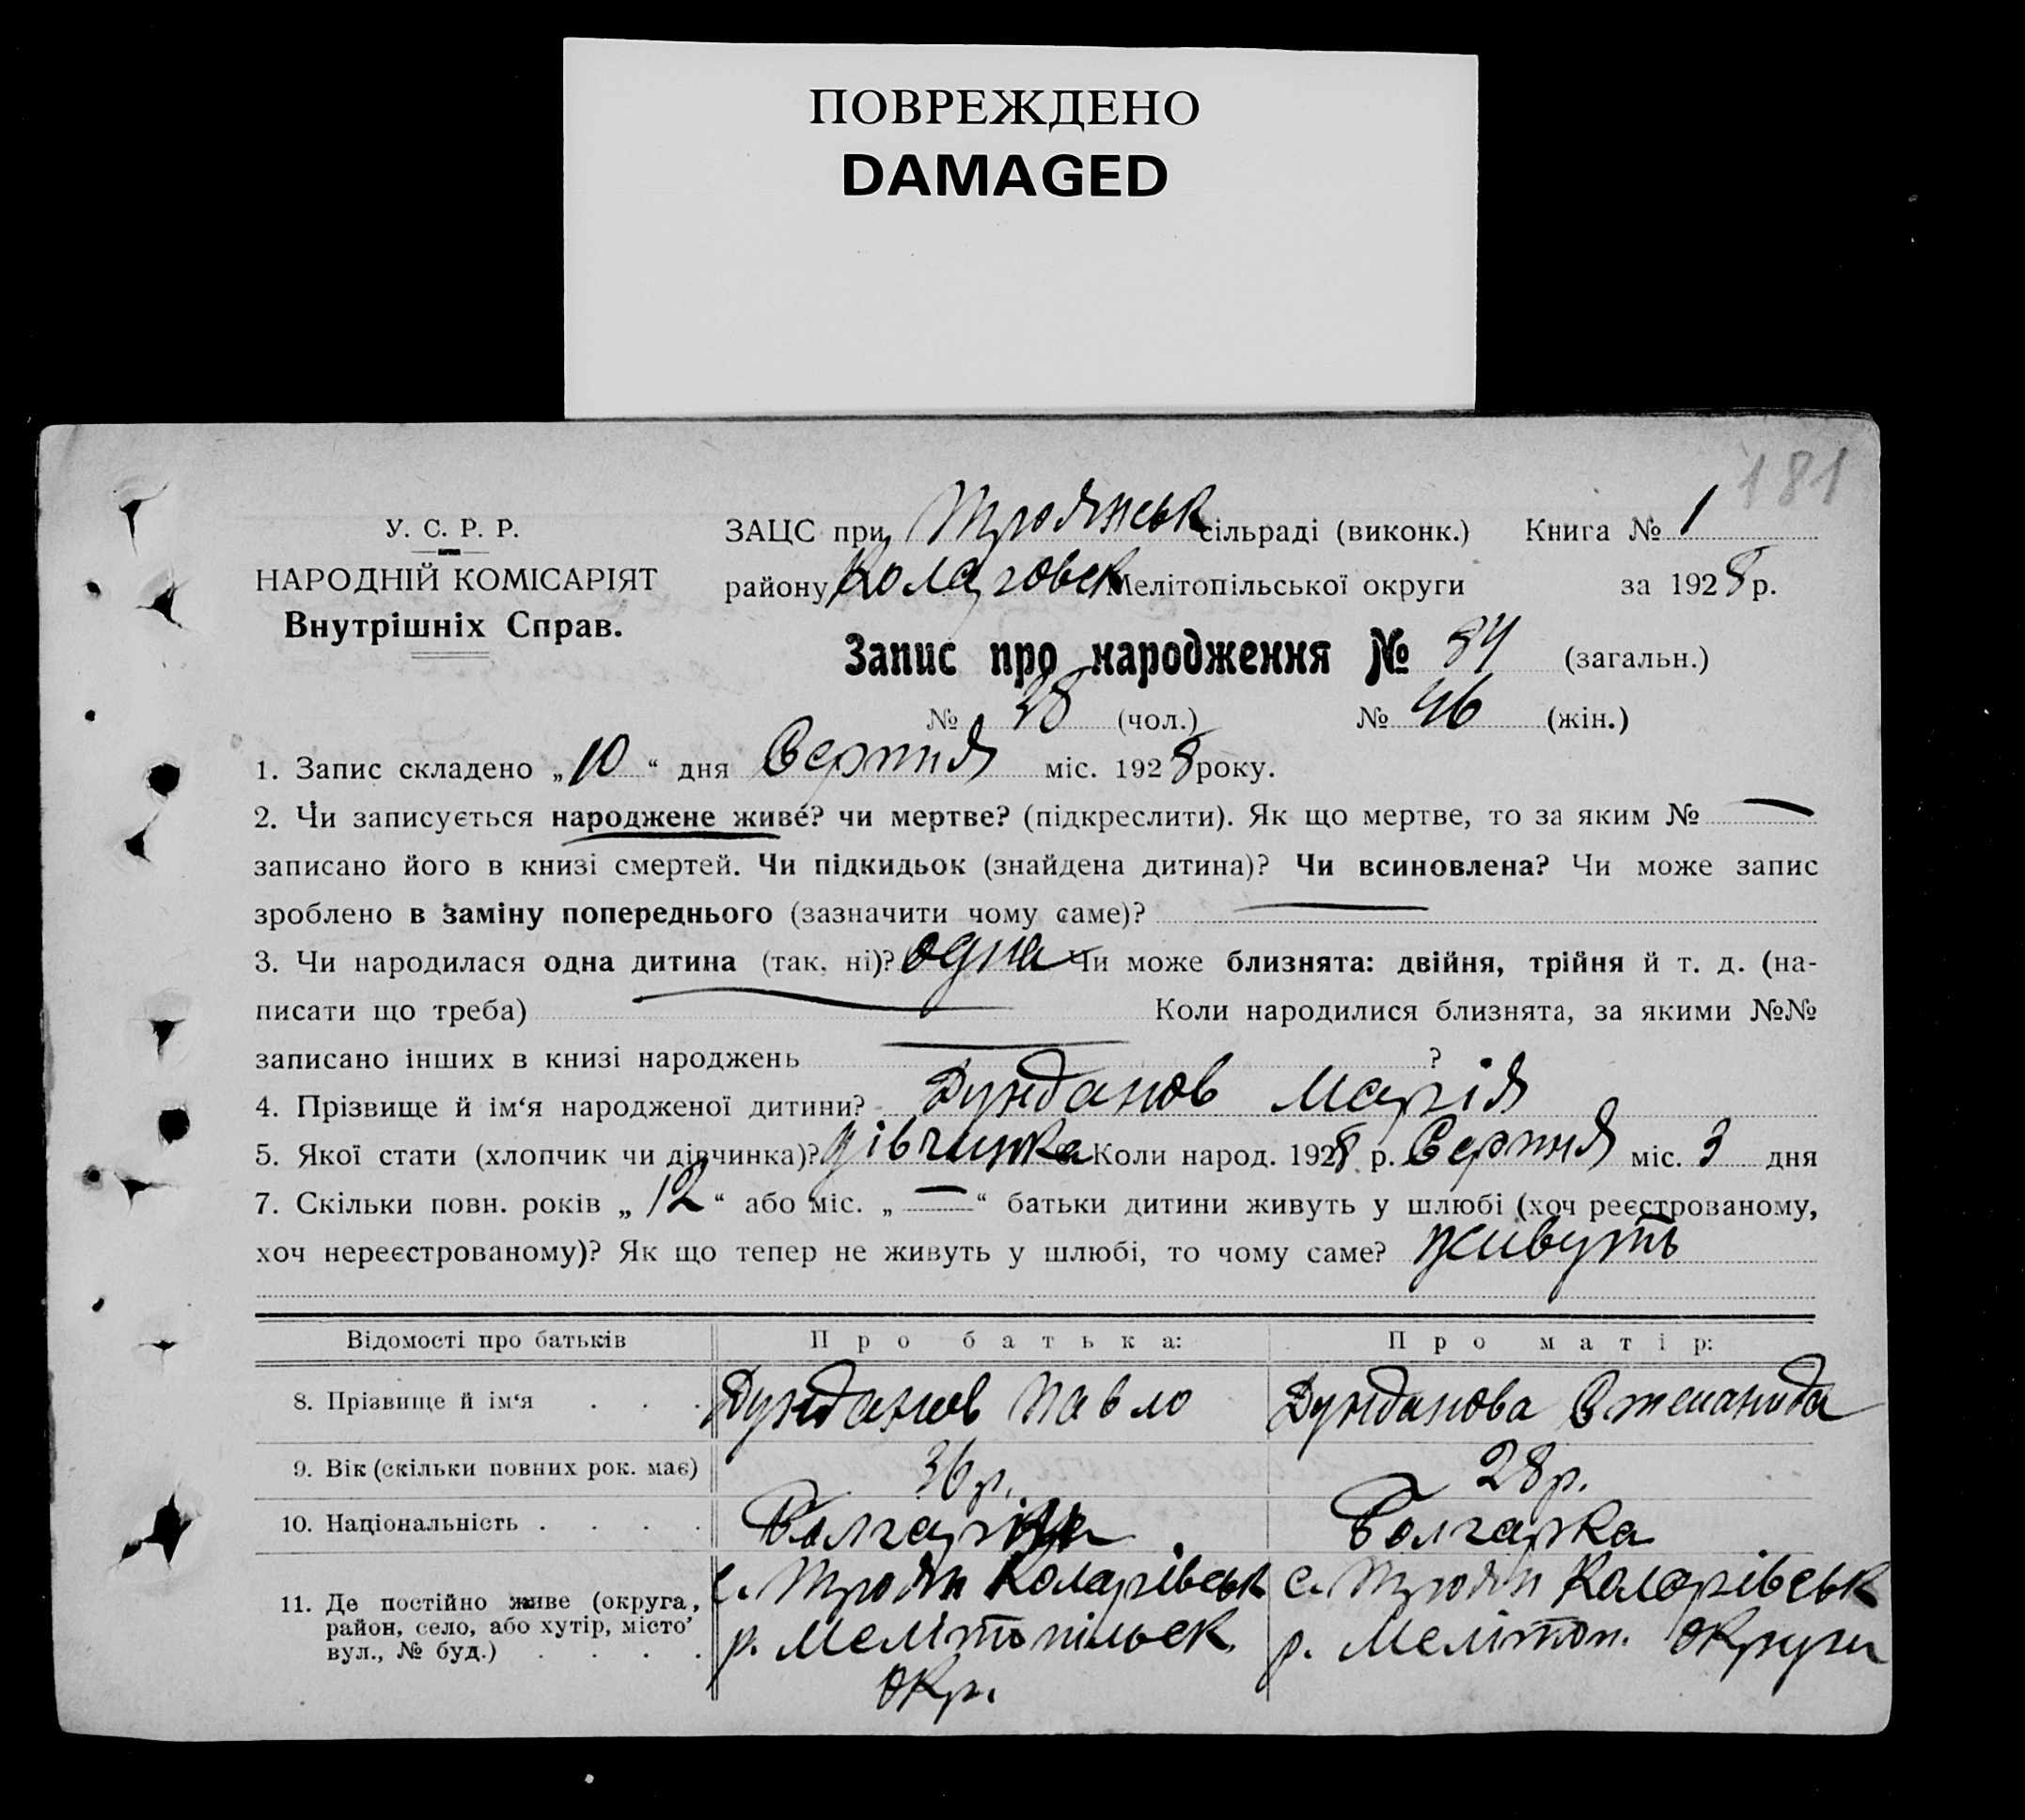 ПОВРЕЖДЕНО
DAMAGED
181
У. С. Р. Р.
НАРОДНІЙ КОМІСАРІЯТ
Внутрішніх Справ.
ЗАЦС при Троянськ сільраді (виконк.) Книга № 1
району Коларовск Мелітопільської округи за 1928 р.
Запис про народження № 84 (загальн.)
№ 38 (чол.) № 46 (жін.)
1. Запис складено „10“ дня Серпня міс. 1928 року.
2. Чи записується народжене живе? чи мертве? (підкреслити). Як що мертве, то за яким № —
записано його в книзі смертей. Чи підкидьок (знайдена дитина)? Чи всиновлена? Чи може запис
зроблено в заміну попереднього (зазначити чому саме)? —
3. Чи народилася одна дитина (так, ні)? одна Чи може близнята: двійня, трійня й т. д. (на-
писати що треба) — Коли народилися близнята, за якими №№
записано інших в книзі народжень — ?
4. Прізвище й ім‘я народженої дитини? Дунданов Марія
5. Якої стати (хлопчик чи дівчинка)? дівчинка Коли народ. 1928 р. Серпня міс. 3 дня
7. Скільки повн. років „12“ або міс. „—“ батьки дитини живуть у шлюбі (хоч реєстрованому,
хоч нереєстрованому)? Як що тепер не живуть у шлюбі, то чому саме? живуть
Відомості про батьків Про батька: Про матір:
8. Прізвище й ім‘я . . . Дунданов Павло Дунданова Степанида
9. Вік (скільки повних рок. має) 36 р. 28 р.
10. Національність . . . . Болгарка
11. Де постійно живе (округа, с. Троян Коларівськ с. Троян Коларівськ
район, село, або хутір, місто’ р. Мелітопільск. р. Мелітоп. округи
вул., № буд.) . . . . окр.